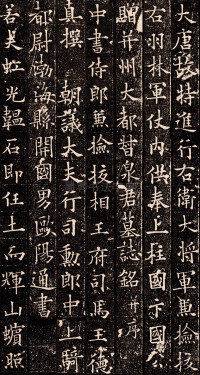 大唐故特進行右衛大將軍兼檢挍
右羽林軍仗內供奉上柱國卞國公
贈并州大都督泉君墓誌銘并序
中書侍郎兼檢挍相王府司馬王德
真撰　朝議大夫行司勳郎中上騎
都尉渤海縣開國男歐陽通書
若夫虹光韞石即任土而輝山蠙照